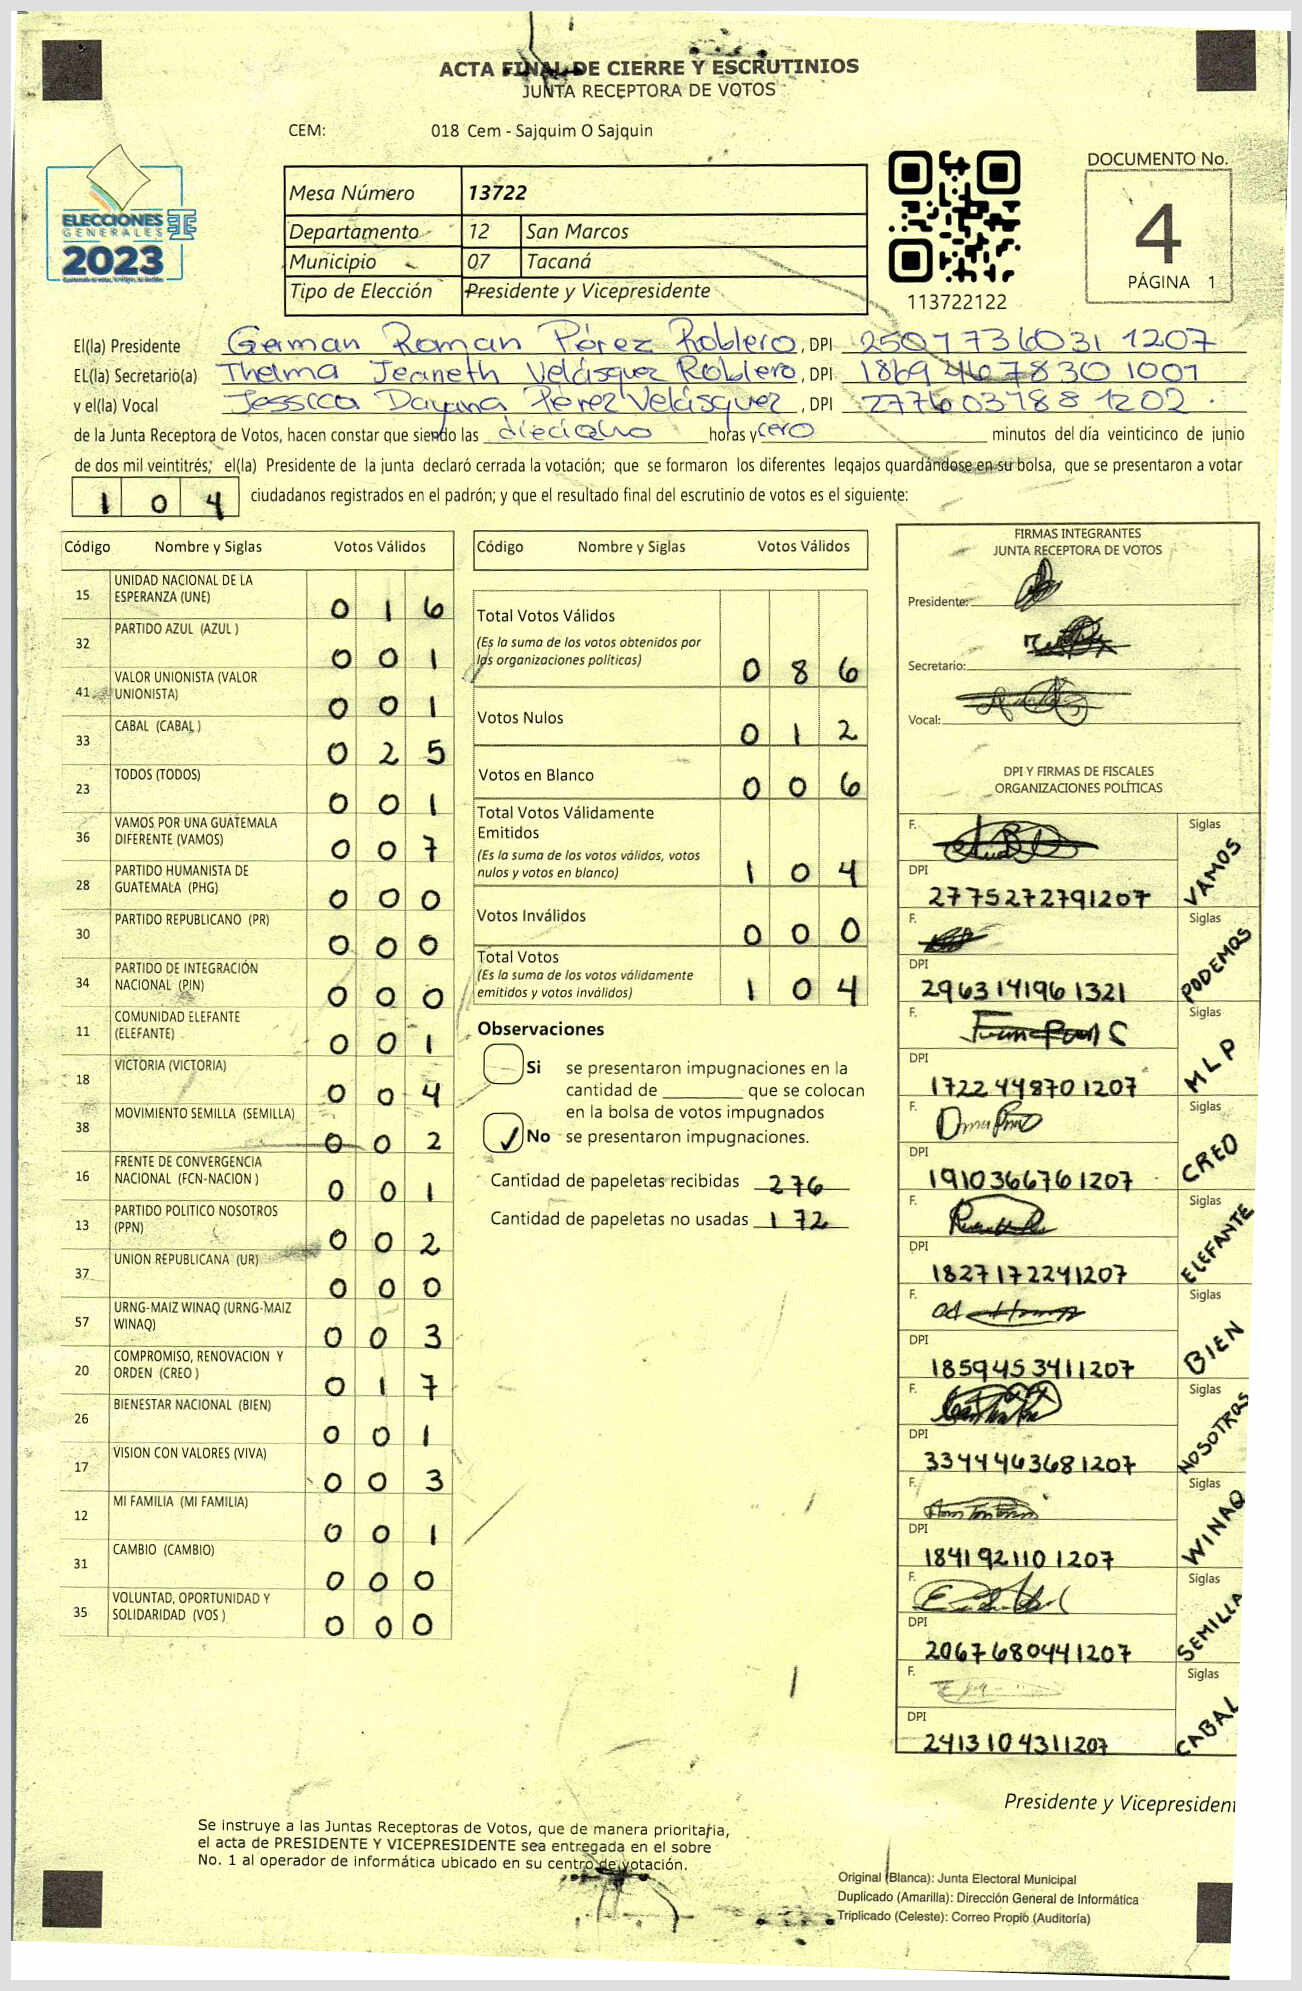 ACTA FINAL DE CIERRE Y ESCRUTINIOS
JUNTA RECEPTORA DE VOTOS
CEM: 018 Cem - Sajquim O Sajquin
ELECCIONES
GENERALES
2023
Mesa Número 13722
Departamento 12 San Marcos
Municipio 07 Tacaná
Tipo de Elección Presidente y Vicepresidente
113722122
DOCUMENTO No.
4
PÁGINA 1
El(la) Presidente German Roman Pérez Roblero, DPI 2501736031207
EL(la) Secretario(a) Thelma Jeaneth Velásquez Roblero, DPI 1869467830 1001
y el(la) Vocal Jessica Dayana Pérez Velásquez, DPI 277603788 1202.
de la Junta Receptora de Votos, hacen constar que siendo las dieciocho horas y cero minutos del día veinticinco de junio
de dos mil veintitrés; el(la) Presidente de la junta declaró cerrada la votación; que se formaron los diferentes legajos guardándose en su bolsa, que se presentaron a votar
104 ciudadanos registrados en el padrón; y que el resultado final del escrutinio de votos es el siguiente:
Código Nombre y Siglas Votos Válidos
15 UNIDAD NACIONAL DE LA
ESPERANZA (UNE) 0 1 6
32 PARTIDO AZUL (AZUL ) 0 0 1
41 VALOR UNIONISTA (VALOR
UNIONISTA) 0 0 1
33 CABAL (CABAL ) 0 2 5
23 TODOS (TODOS) 0 0 1
36 VAMOS POR UNA GUATEMALA
DIFERENTE (VAMOS) 0 0 7
28 PARTIDO HUMANISTA DE
GUATEMALA (PHG) 0 0 0
30 PARTIDO REPUBLICANO (PR) 0 0 0
34 PARTIDO DE INTEGRACIÓN
NACIONAL (PIN) 0 0 0
11 COMUNIDAD ELEFANTE
(ELEFANTE) 0 0 1
18 VICTORIA (VICTORIA) 0 0 4
38 MOVIMIENTO SEMILLA (SEMILLA) 0 0 2
16 FRENTE DE CONVERGENCIA
NACIONAL (FCN-NACION ) 0 0 1
13 PARTIDO POLITICO NOSOTROS
(PPN) 0 0 2
37 UNION REPUBLICANA (UR) 0 0 0
57 URNG-MAIZ WINAQ (URNG-MAIZ
WINAQ) 0 0 3
20 COMPROMISO, RENOVACION Y
ORDEN (CREO ) 0 1 7
26 BIENESTAR NACIONAL (BIEN) 0 0 1
17 VISION CON VALORES (VIVA) 0 0 3
12 MI FAMILIA (MI FAMILIA) 0 0 1
31 CAMBIO (CAMBIO) 0 0 0
35 VOLUNTAD, OPORTUNIDAD Y
SOLIDARIDAD (VOS ) 0 0 0
Código Nombre y Siglas Votos Válidos
Total Votos Válidos
(Es la suma de los votos obtenidos por
las organizaciones políticas) 0 8 6
Votos Nulos 0 1 2
Votos en Blanco 0 0 6
Total Votos Válidamente
Emitidos
(Es la suma de los votos válidos, votos
nulos y votos en blanco) 1 0 4
Votos Inválidos 0 0 0
Total Votos
(Es la suma de los votos válidamente
emitidos y votos inválidos) 1 0 4
Observaciones
Si se presentaron impugnaciones en la
cantidad de ________ que se colocan
en la bolsa de votos impugnados
✓ No se presentaron impugnaciones.
Cantidad de papeletas recibidas 276
Cantidad de papeletas no usadas 172
FIRMAS INTEGRANTES
JUNTA RECEPTORA DE VOTOS
Presidente:
Secretario:
Vocal:
DPI Y FIRMAS DE FISCALES
ORGANIZACIONES POLÍTICAS
F. Siglas
DPI 2775272791207 VAMOS
F. Siglas
DPI 2963141961321 PODEMOS
F. Siglas
DPI 1722448701207 MLP
F. Siglas
DPI 1910366761207 CREO
F. Siglas
DPI 1827172241207 ELEFANTE
F. Siglas
DPI 1859453411207 BIEN
F. Siglas
DPI 3344463681207 NOSOTROS
F. Siglas
DPI 1841921101207 WINAQ
F. Siglas
DPI 2067680441207 SEMILLA
F. Siglas
DPI 2413104311207 CABAL
Presidente y Vicepresident
Se instruye a las Juntas Receptoras de Votos, que de manera prioritaria,
el acta de PRESIDENTE Y VICEPRESIDENTE sea entregada en el sobre
No. 1 al operador de informática ubicado en su centro de votación.
Original (Blanca): Junta Electoral Municipal
Duplicado (Amarilla): Dirección General de Informática
Triplicado (Celeste): Correo Propio (Auditoría)